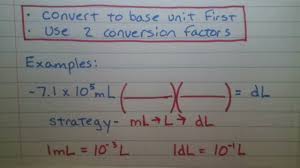 • Convert to base unit first
• Use 2 conversion factors
Examples:
-7.1 x 10⁵ mL (———)(———) = dL
strategy - mL → L → dL
1mL = 10⁻³L 1dL = 10⁻¹L